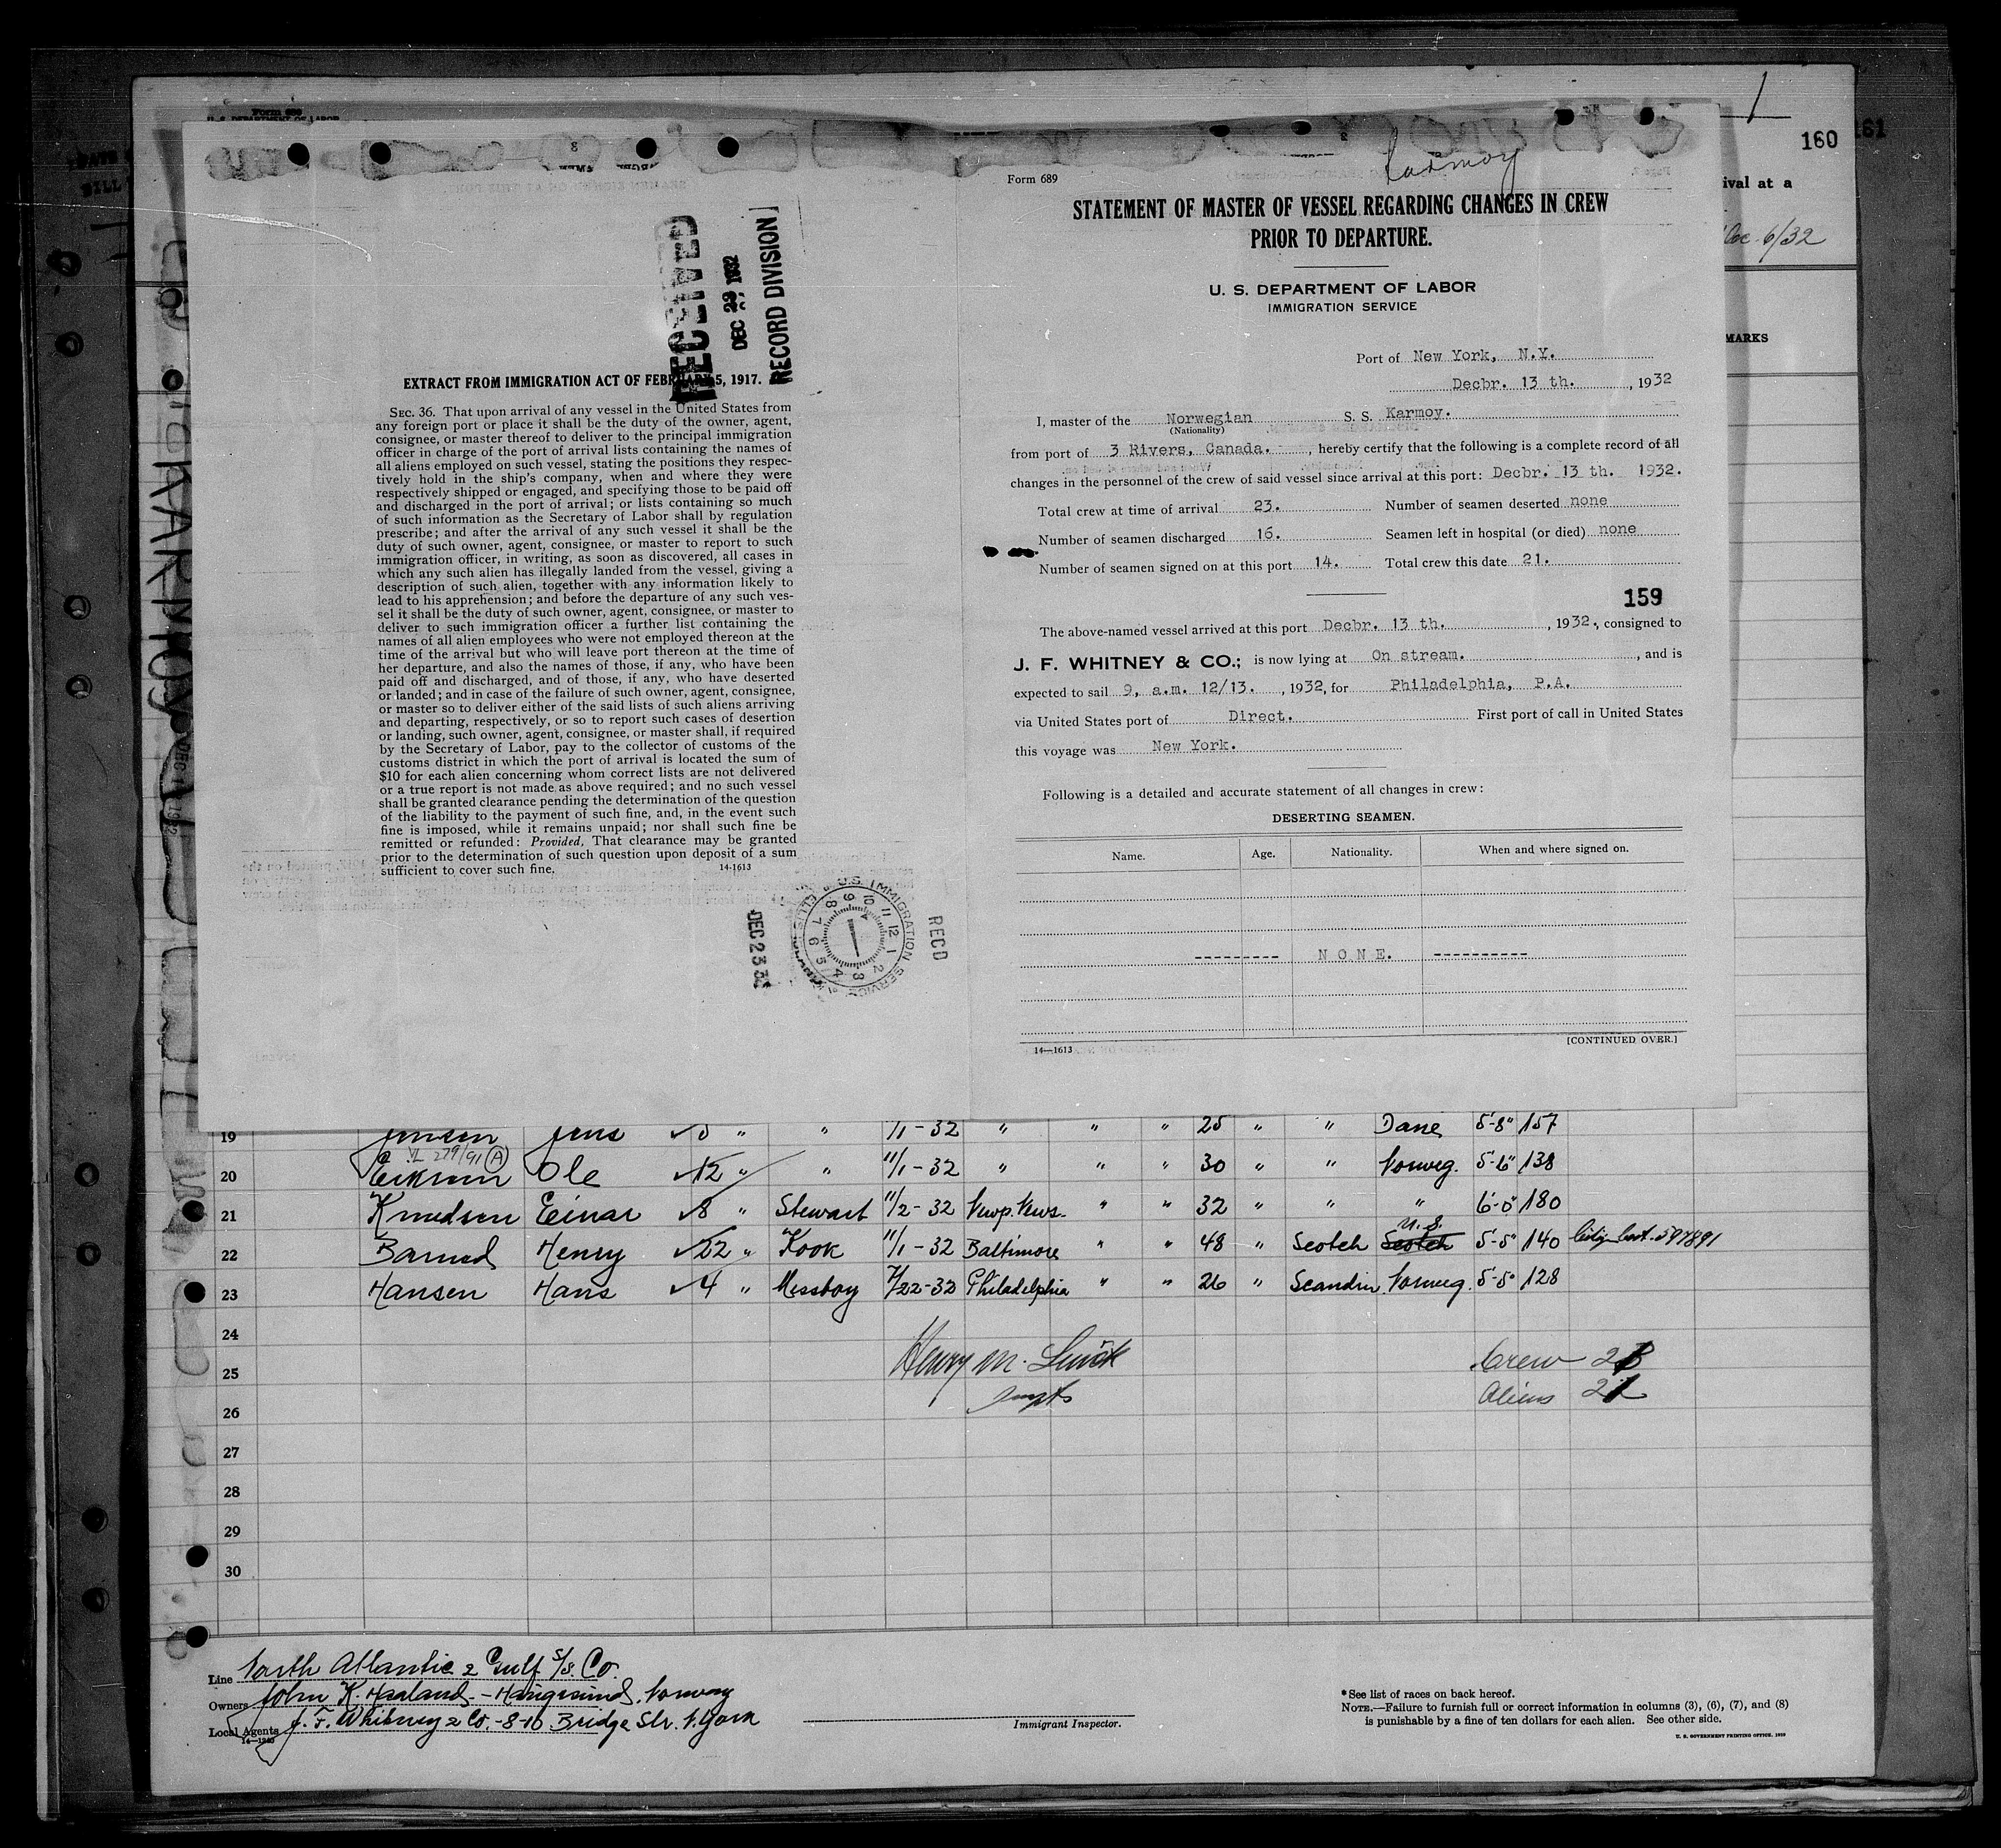 160
161
Form 689
Karmoy
STATEMENT OF MASTER OF VESSEL REGARDING CHANGES IN CREW
PRIOR TO DEPARTURE.
U. S. DEPARTMENT OF LABOR
IMMIGRATION SERVICE
Port of New York, N.Y.
Decbr. 13 th. , 1932
I, master of the Norwegian S. S. Karmoy.
(Nationality)
from port of 3 Rivers, Canada. , hereby certify that the following is a complete record of all
changes in the personnel of the crew of said vessel since arrival at this port: Decbr. 13 th. 1932.
Total crew at time of arrival 23. Number of seamen deserted none
Number of seamen discharged 16. Seamen left in hospital (or died) none
Number of seamen signed on at this port 14. Total crew this date 21.
159
The above-named vessel arrived at this port Decbr. 13 th. , 1932., consigned to
J. F. WHITNEY & CO.; is now lying at On stream. , and is
expected to sail 9, a.m. 12/13. , 1932, for Philadelphia, P.A.
via United States port of Direct. First port of call in United States
this voyage was New York.
Following is a detailed and accurate statement of all changes in crew:
DESERTING SEAMEN.
Name. Age. Nationality. When and where signed on.
---------- N O N E. -----------
14—1613 [CONTINUED OVER.]
RECEIVED
DEC 29 1932
RECORD DIVISION
EXTRACT FROM IMMIGRATION ACT OF FEBRUARY 5, 1917.
SEC. 36. That upon arrival of any vessel in the United States from
any foreign port or place it shall be the duty of the owner, agent,
consignee, or master thereof to deliver to the principal immigration
officer in charge of the port of arrival lists containing the names of
all aliens employed on such vessel, stating the positions they respec-
tively hold in the ship's company, when and where they were
respectively shipped or engaged, and specifying those to be paid off
and discharged in the port of arrival; or lists containing so much
of such information as the Secretary of Labor shall by regulation
prescribe; and after the arrival of any such vessel it shall be the
duty of such owner, agent, consignee, or master to report to such
immigration officer, in writing, as soon as discovered, all cases in
which any such alien has illegally landed from the vessel, giving a
description of such alien, together with any information likely to
lead to his apprehension; and before the departure of any such ves-
sel it shall be the duty of such owner, agent, consignee, or master to
deliver to such immigration officer a further list containing the
names of all alien employees who were not employed thereon at the
time of the arrival but who will leave port thereon at the time of
her departure, and also the names of those, if any, who have been
paid off and discharged, and of those, if any, who have deserted
or landed; and in case of the failure of such owner, agent, consignee,
or master so to deliver either of the said lists of such aliens arriving
and departing, respectively, or so to report such cases of desertion
or landing, such owner, agent, consignee, or master shall, if required
by the Secretary of Labor, pay to the collector of customs of the
customs district in which the port of arrival is located the sum of
$10 for each alien concerning whom correct lists are not delivered
or a true report is not made as above required; and no such vessel
shall be granted clearance pending the determination of the question
of the liability to the payment of such fine, and, in the event such
fine is imposed, while it remains unpaid; nor shall such fine be
remitted or refunded: Provided, That clearance may be granted
prior to the determination of such question upon deposit of a sum
sufficient to cover such fine. 14-1613
U.S. IMMIGRATION SERVICE
DEC 23 32
RECD
KARMOY
ival at a
6/32
MARKS
19 Jensen Jens " " 11/1-32 " " " 25 " " Dane 5'-8" 157
VL 279/91 (A)
20 Ole 12 " " 11/1-32 " " " 30 " " Norweg. 5'-6" 138
21 Knudsen Einar 8 " Stewart 11/2-32 Newp. News " " 32 " " " 6'-0" 180
U.S.
22 Barned Henry 22 " Kook 11/1-32 Baltimore " " 48 " Scotch Scotch 5'-5" 140
23 Hansen Hans 4 " Messboy 7/22-32 Philadelphia " " 26 " Scandin. Norweg. 5'-5" 128
24
25 Henry M. Crew
26 Aliens
27
28
29
30
Line North Atlantic & Gulf S/S. Co.
Owners John K. Haaland - Haugesund, Norway
Local Agents J. F. Whitney & Co. - 8-10 Bridge Str. N. York
Immigrant Inspector.
* See list of races on back hereof.
NOTE.—Failure to furnish full or correct information in columns (3), (6), (7), and (8)
is punishable by a fine of ten dollars for each alien. See other side.
U. S. GOVERNMENT PRINTING OFFICE